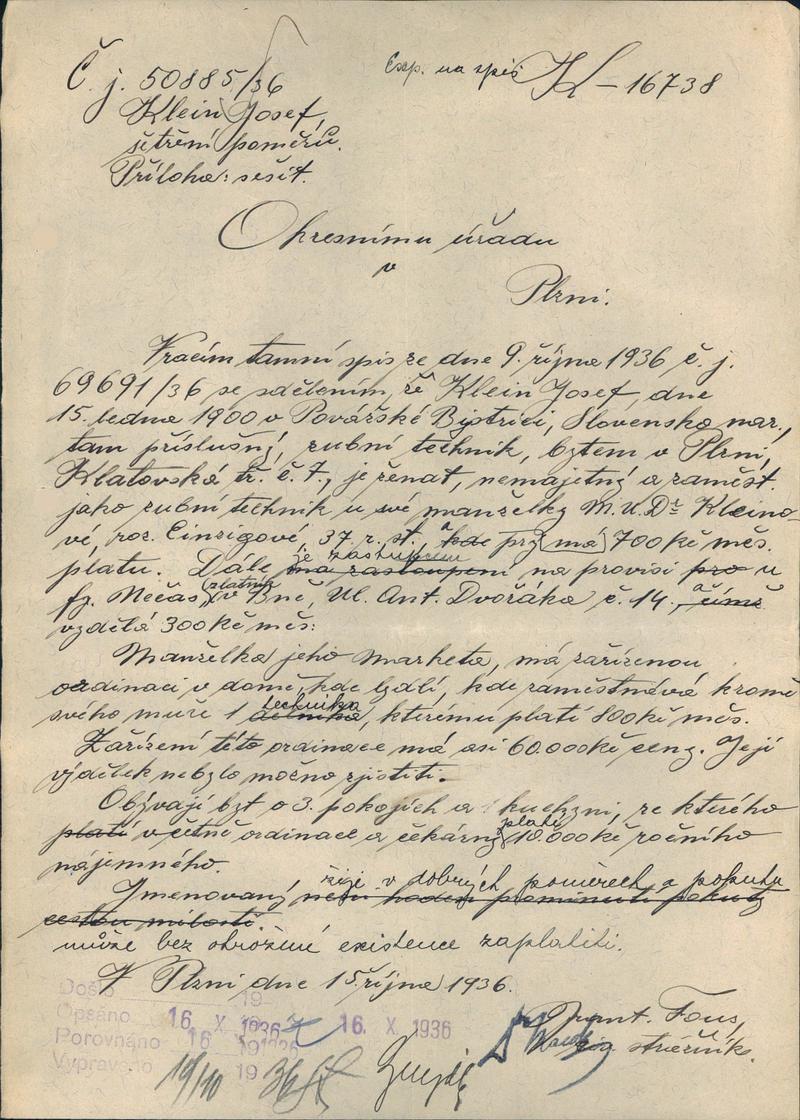 Č. j. 50885/36
Exp. na spis K-16738
Klein Josef,
šetření poměrů.
Příloha: sešit.
Okresnímu úřadu
v
Plzni.
Vracím tamní spis ze dne 9. října 1936 č. j.
69691/36 se sdělením, že Klein Josef, dne
15. ledna 1900 v Povážské Bystrici, Slovensko nar.,
tam příslušný, zubní technik, bytem v Plzni,
Klatovská tř. č. 7., je ženat, nemajetný a zaměst.
jako zubní technik u své manželky M.U.Dr Kleino-
vé, roz. Einzigové, 37 r. st., kde prý má 700 Kč měs.
je zástupcem
platu. Dále má zastoupení na provisi pro u
fy. Mečas v Brně, Ul. Ant. Dvořáka č. 14., čímž
vydělá 300 Kč měs.
Manželka jeho Marketa, má zařízenou
ordinaci v domě, kde bydlí, kde zaměstnává kromě
technika
svého muže 1 dělníka, kterému platí 800 Kč měs.
Zařízení této ordinace má asi 60.000 Kč ceny. Její
výdělek nebylo možno zjistiti.
Obývají byt o 3. pokojích a 1 kuchyni, ze kterého
platí
platí v četně ordinace a čekárny 10.000 Kč ročního
nájemného.
žije v dobrých poměrech a pokutu
Jmenovaný není hoden prominutí pokuty
cestou milosti.
může bez ohrožení existence zaplatiti.
V Plzni dne 15. října 1936.
Došlo 19
Opsáno 16 X 1936 16. X 1936
Porovnáno 16
Vypraveno 19
19/10 36
Fous,
strážník.